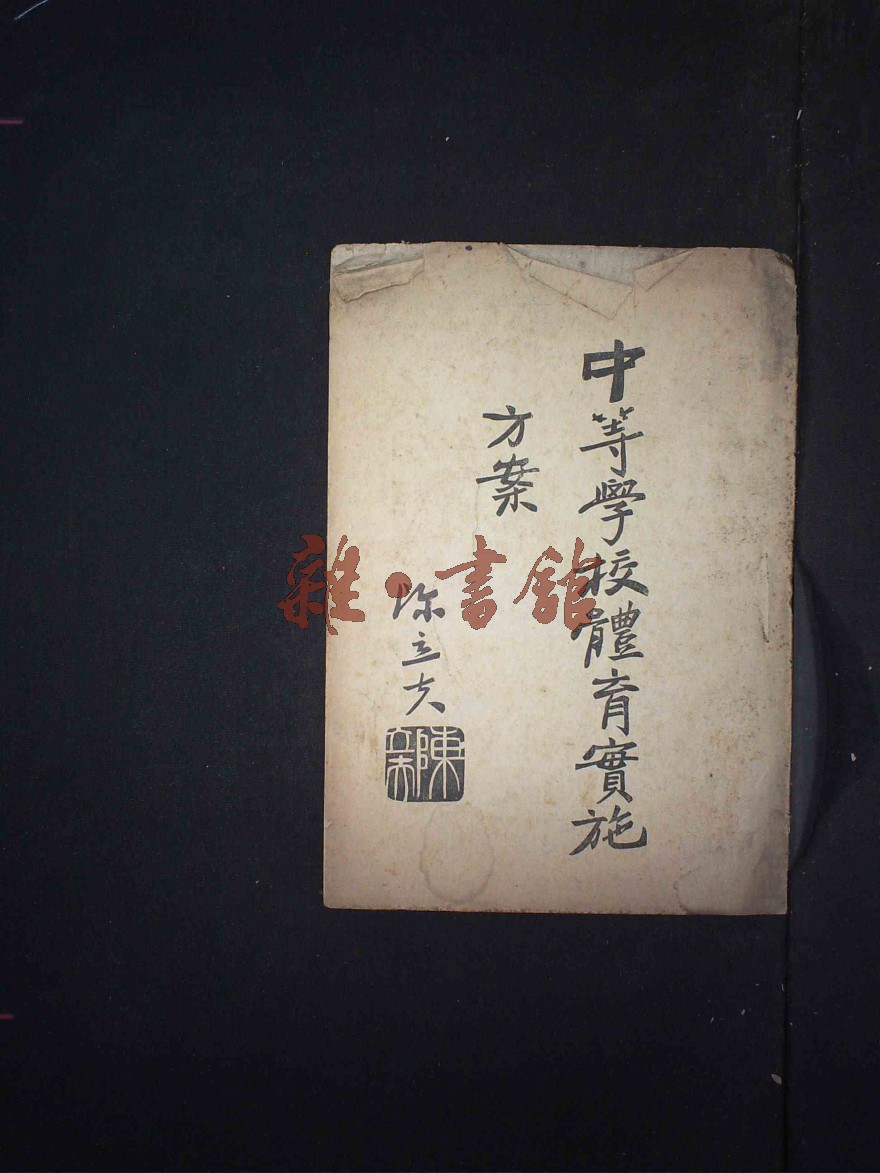 中等學校體育實施
方案
陈立夫
雜·書館